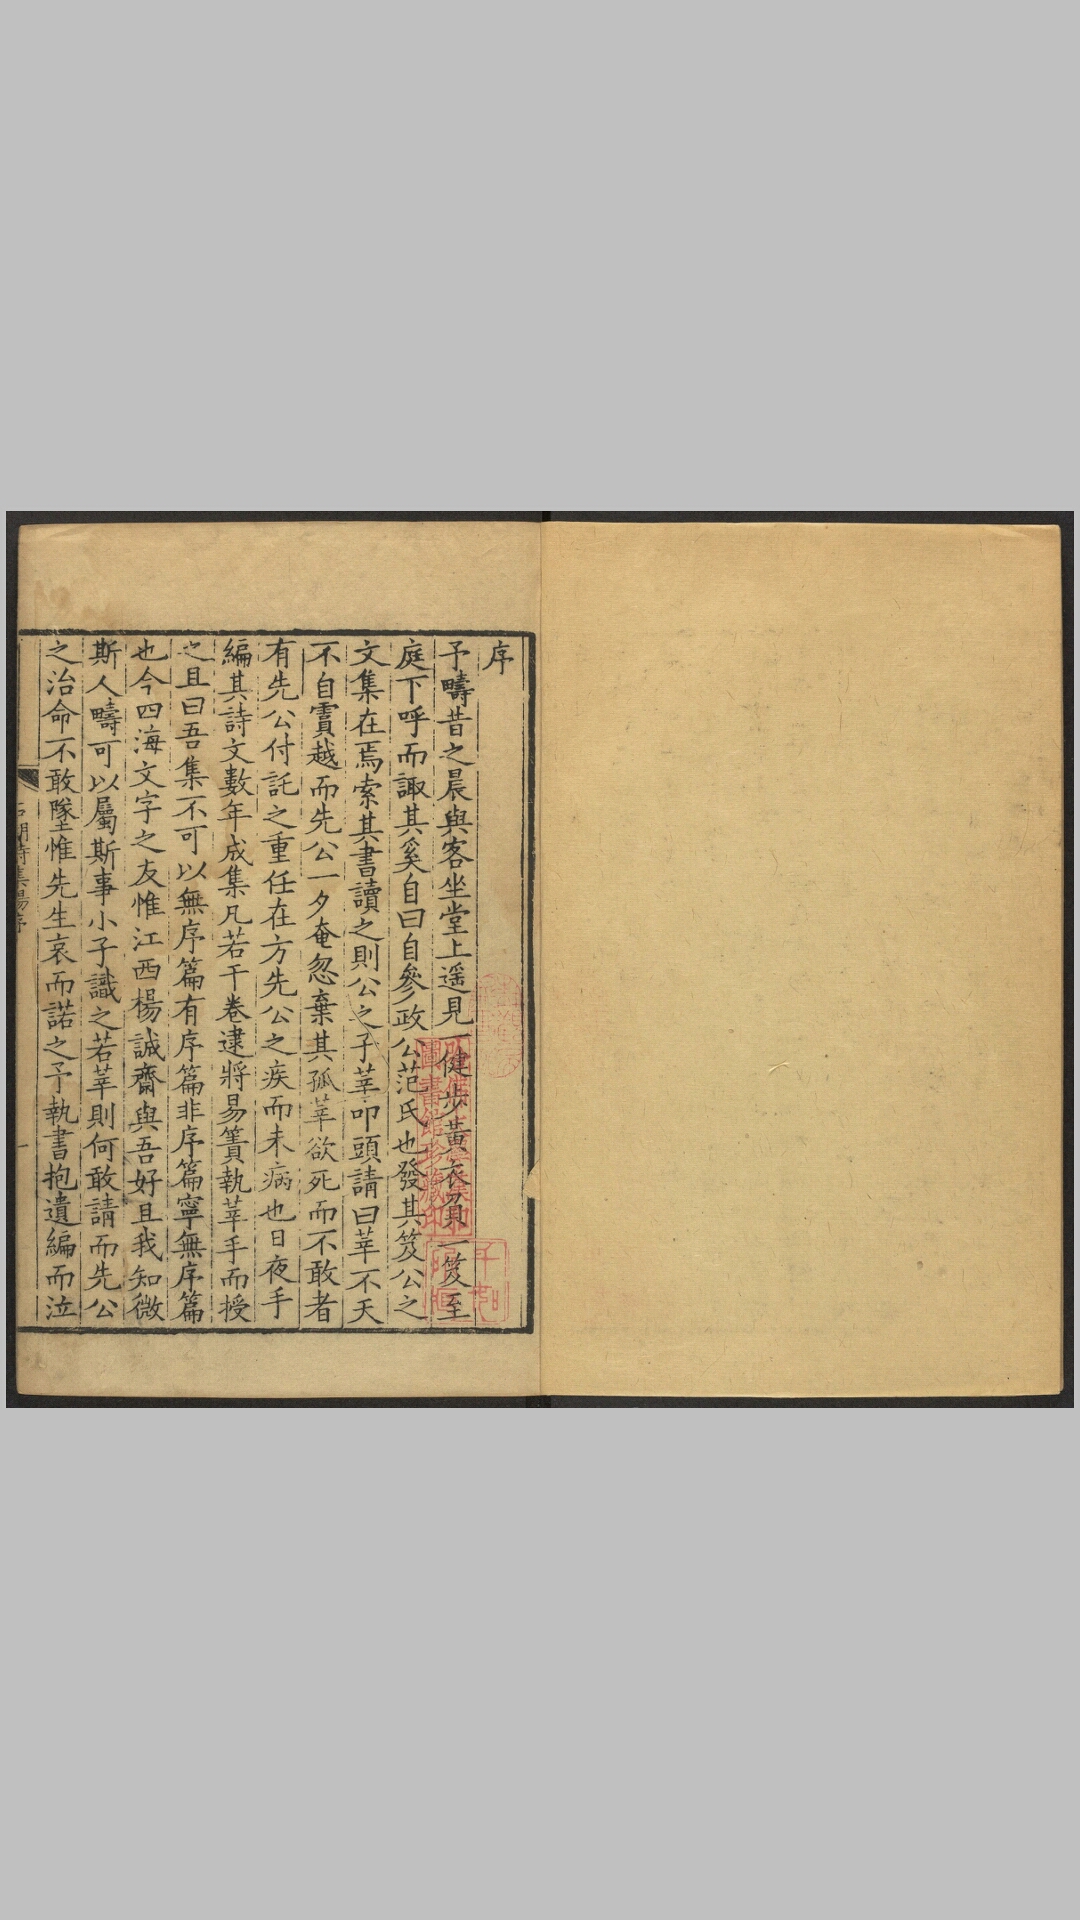 序
予疇昔之晨與客坐堂上遥見一健步黃衣負一笈至
庭下呼而諏其奚自曰自參政公范氏也發其笈公之
文集在焉索其書讀之則公之子莘叩頭請曰莘不天
不自霣越而先公一夕奄忽棄其孤莘欲死而不敢者
有先公付託之重任在方先公之疾而未病也日夜手
編其詩文數年成集凡若干卷逮將易簀執莘手而授
之且曰吾集不可以無序篇有序篇非序篇寧無序篇
也今四海文字之友惟江西楊誠齋與吾好且我知微
斯人疇可以屬斯事小子識之若莘則何敢請而先公
之治命不敢墜惟先生哀而諾之予執書抱遺編而泣
石湖詩集楊序
一
圖書館珍藏印